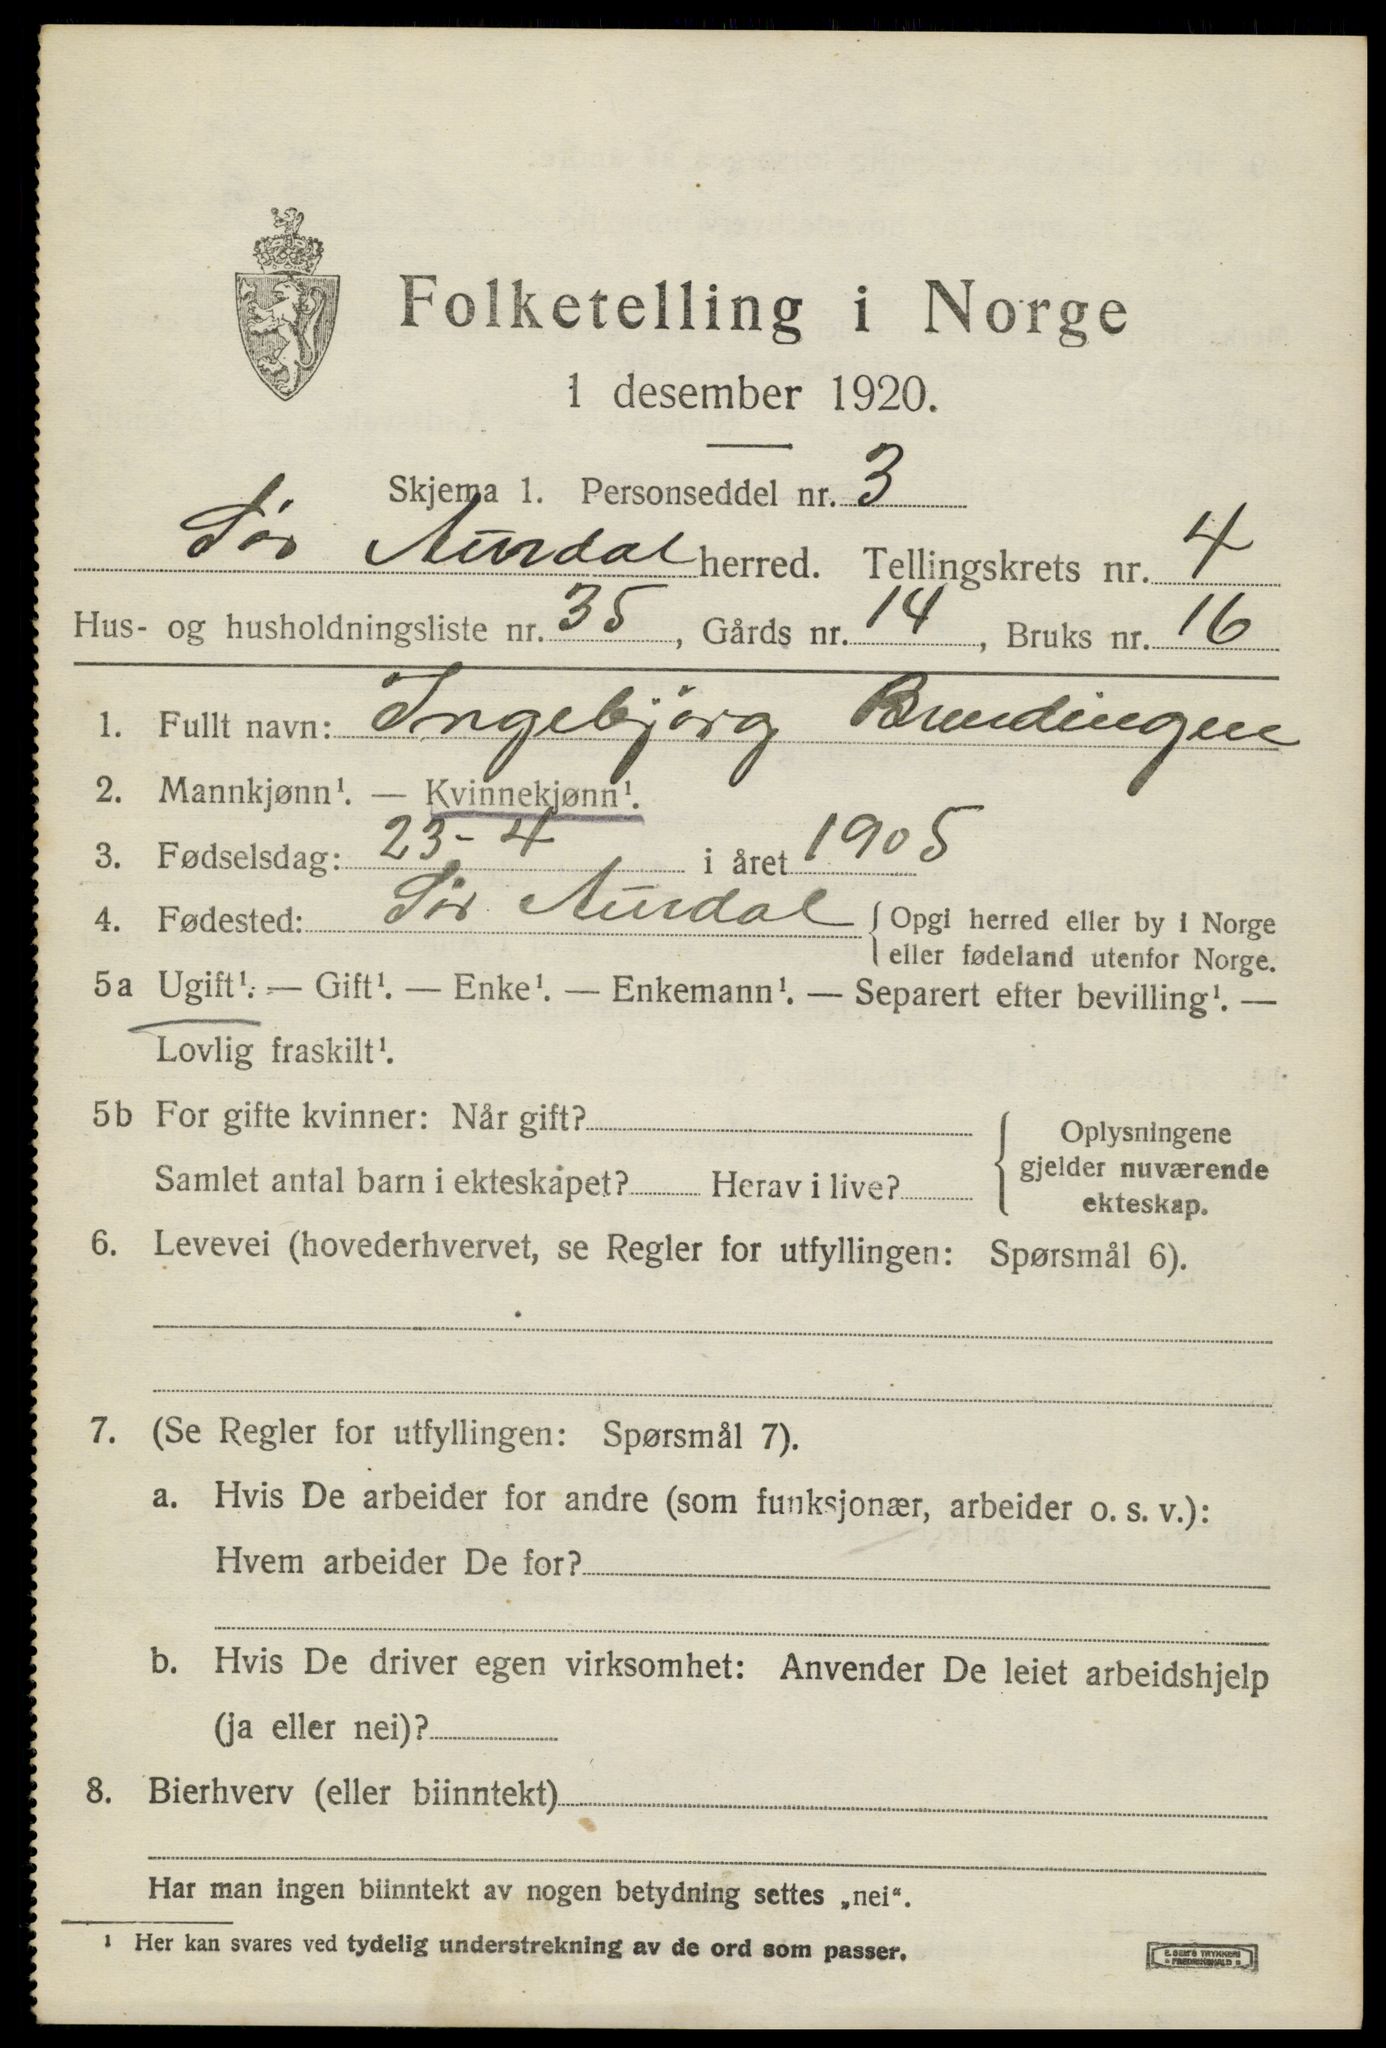 Folketelling i Norge
1 desember 1920.
Skjema 1. Personseddel nr. 3
Sør Aurdal herred. Tellingskrets nr. 4
Hus- og husholdningsliste nr. 35, Gårds nr. 14, Bruks nr. 16
1. Fullt navn: Ingebjørg
2. Mannkjønn¹. — Kvinnekjønn¹.
3. Fødselsdag: 23-4 i året 1905
4. Fødested: Sør Aurdal { Opgi herred eller by i Norge
eller fødeland utenfor Norge.
5a Ugift¹. — Gift¹. — Enke¹. — Enkemann¹. — Separert efter bevilling¹. —
Lovlig fraskilt¹.
5b For gifte kvinner: Når gift? { Oplysningene
gjelder nuværende
Samlet antal barn i ekteskapet? Herav i live?
ekteskap.
6. Levevei (hovederhvervet, se Regler for utfyllingen: Spørsmål 6).
7. (Se Regler for utfyllingen: Spørsmål 7).
a. Hvis De arbeider for andre (som funksjonær, arbeider o. s. v.):
Hvem arbeider De for?
b. Hvis De driver egen virksomhet: Anvender De leiet arbeidshjelp
(ja eller nei)?
8. Bierhverv (eller biinntekt)
Har man ingen biinntekt av nogen betydning settes „nei“.
¹ Her kan svares ved tydelig understrekning av de ord som passer.